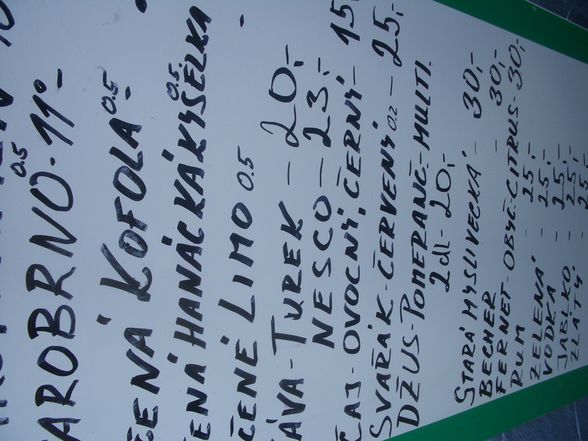 AROBRNO 0.5 - 11°-
ENÁ KOFOLA 0.5 -
ENÁ HANÁCKÁ KYSELKA 0.5. -
ČENÉ LIMO 0.5
ÁVA - TUREK - 20,-
NESCO - 23,-
ČAJ - OVOCNÝ, ČERNÝ - 15
SVAŘÁK - ČERVENÝ 0.2 - 25,-
DŽUS - POMERANČ - MULTI.
2dl - 20,-
STARÁ MYSLIVECKÁ - 30,-
BECHER - 30,-
FERNET - OBYČ - CITRUS - 30,-
RUM - 25,-
ZELENÁ - 25,-
VODKA - 25,-
JABLKO - 25,-